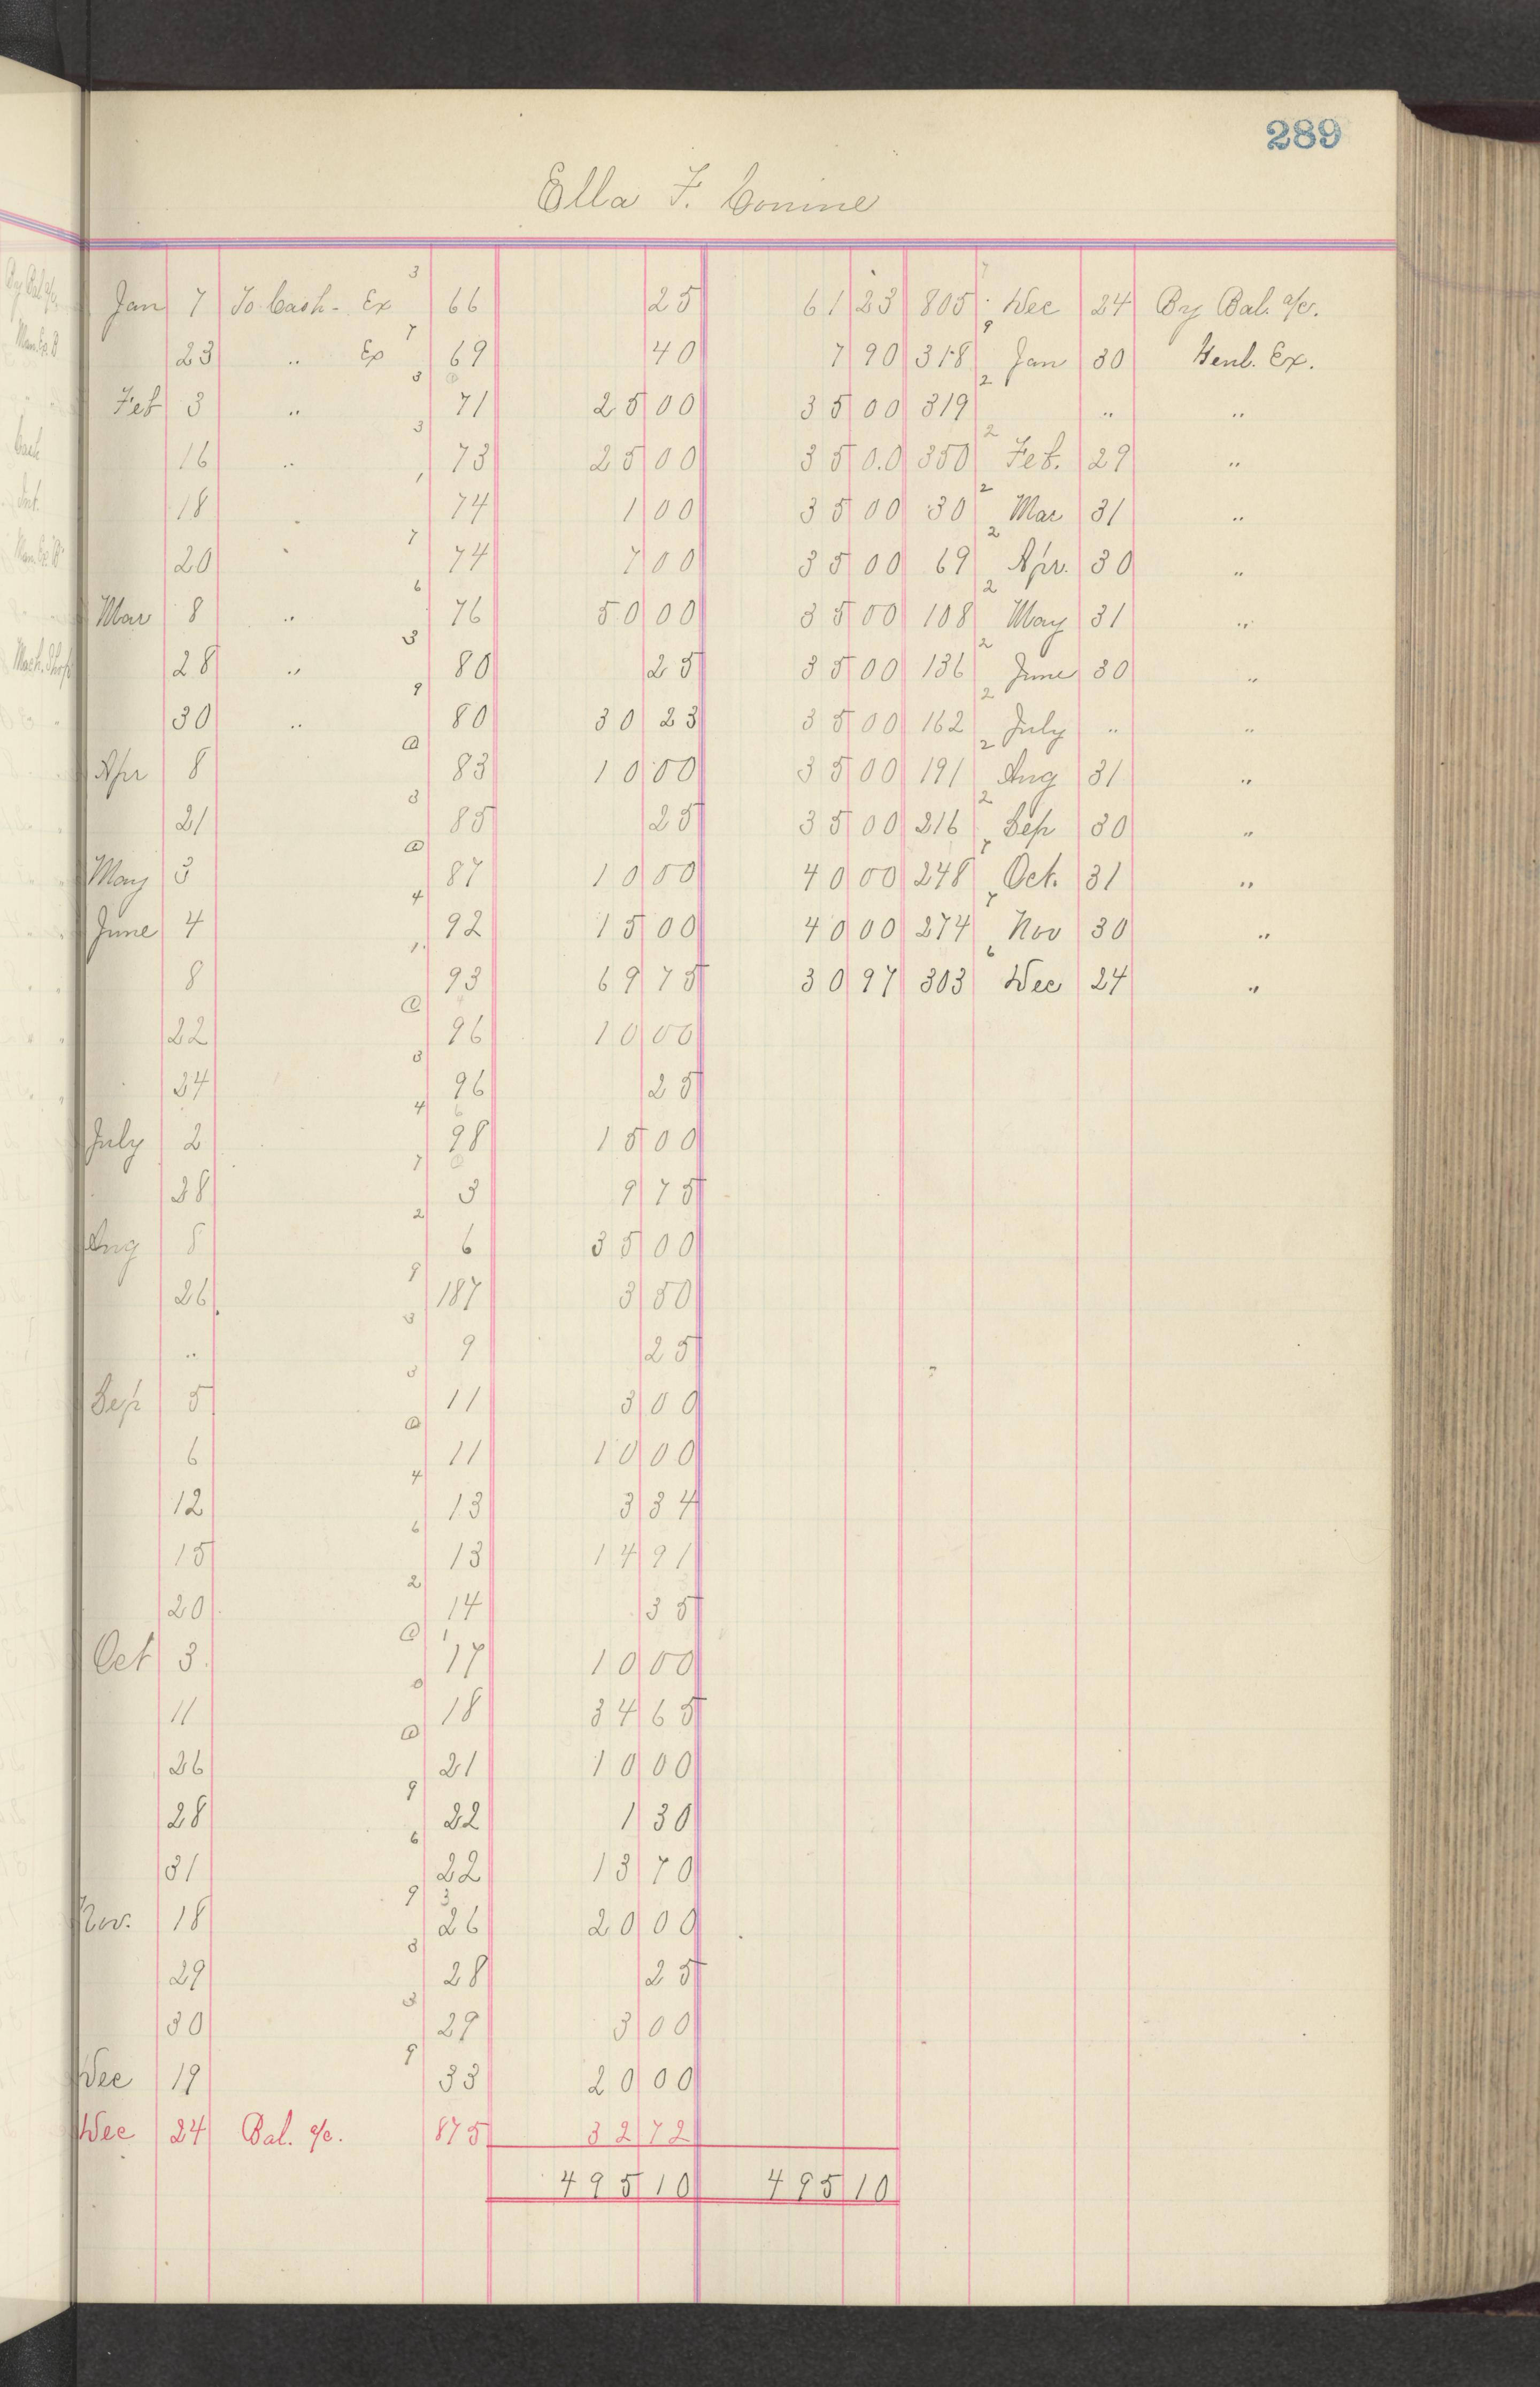 289
Ella F. Conine
Jan 7 To Cash - Ex 3 66 25 61 23 305 Dec 24 By Bal. a/c.
23 " Ex 7 69 40 7 90 318 9 Jan 30 Genl. Ex.
Feb 3 " 3 71 25 00 35 00 319 2 " "
16 " 3 73 25 00 35 0.0 350 2 Feb. 29 "
18 1 74 1 00 35 00 30 2 Mar 31 "
20 7 74 7 00 35 00 69 2 Apr. 30 "
Mar 8 " 6 76 50 00 35 00 108 2 May 31 "
28 " 3 80 25 35 00 136 2 June 30 "
30 " 9 80 30 23 35 00 162 2 July " "
Apr 8 @ 83 10 00 35 00 191 2 Aug 31 "
21 3 85 25 35 00 216 2 Sep 30 "
May 3 @ 87 10 00 40 00 248 7 Oct. 31 "
June 4 4 92 15 00 40 00 274 7 Nov 30 "
8 1 93 69 75 30 97 303 6 Dec 24 "
22 @ 96 10 00
24 3 96 25
July 2 4 98 15 00
28 7 3 9 75
Aug 8 2 6 35 00
26 9 187 3 50
" 3 9 25
Sep 5 3 11 3 00
6 @ 11 10 00
12 4 13 3 34
15 6 13 14 91
20 2 14 35
Oct 3 @ 17 10 00
11 0 18 34 65
26 @ 21 10 00
28 9 22 1 30
31 6 22 13 70
Nov. 18 9 26 20 00
29 3 28 25
30 3 29 3 00
Dec 19 9 33 20 00
Dec 24 Bal. a/c. 875 32 72
495 10 495 10